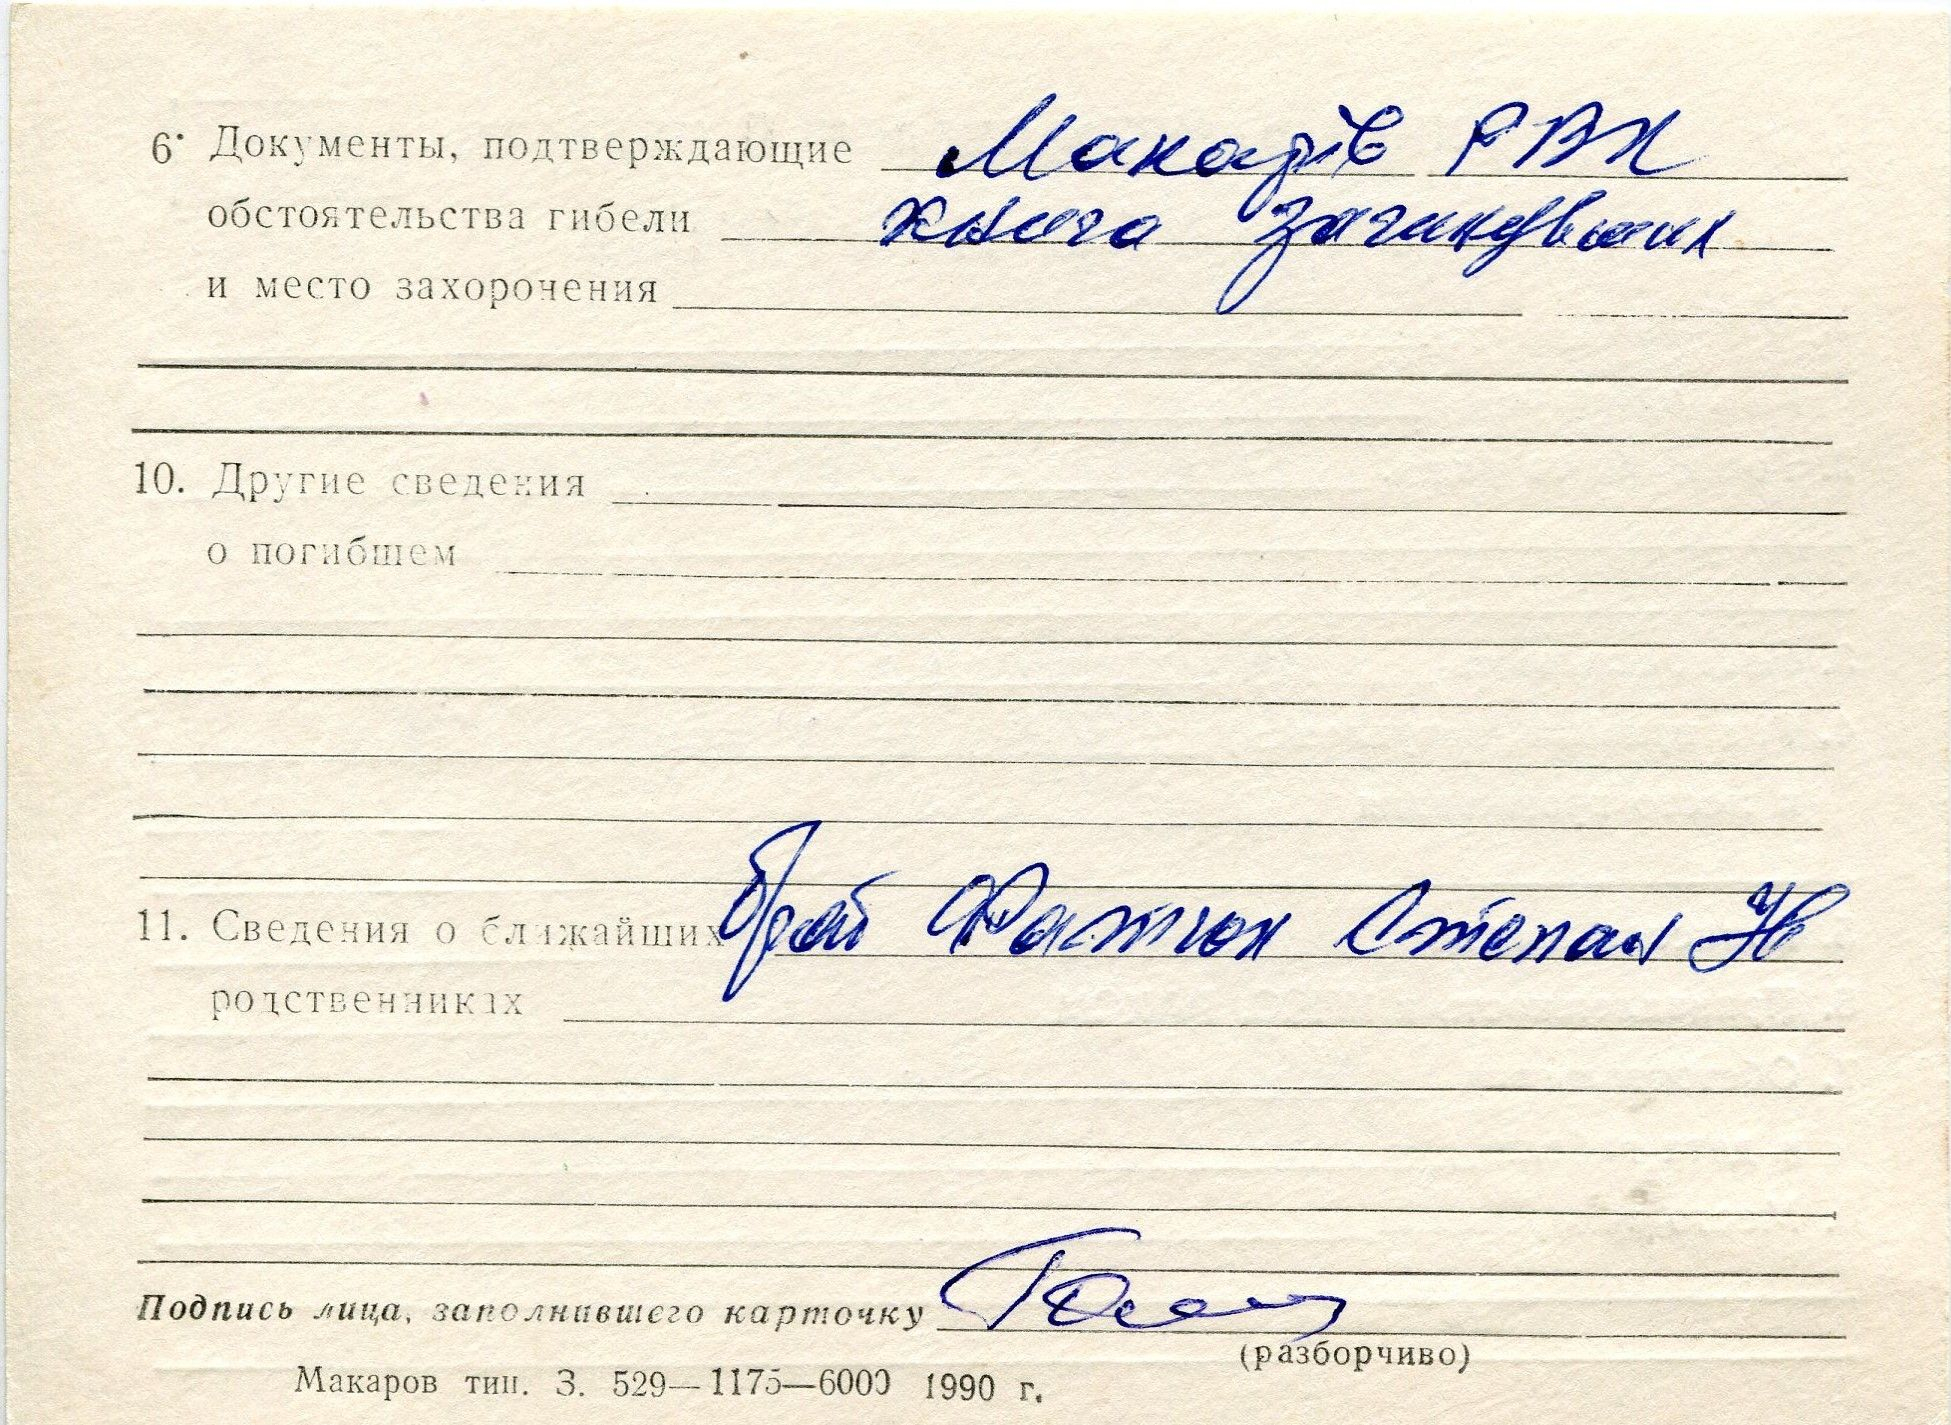 6. Документы, подтверждающие Макарів РВК
обстоятельства гибели книга
и место захоронения
10. Другие сведения
о погибшем
11. Сведения о ближайших брат Степан
родственниках
Подпись лица, заполнившего карточку
(разборчиво)
Макаров тип. З. 529—1175—6000 1990 г.